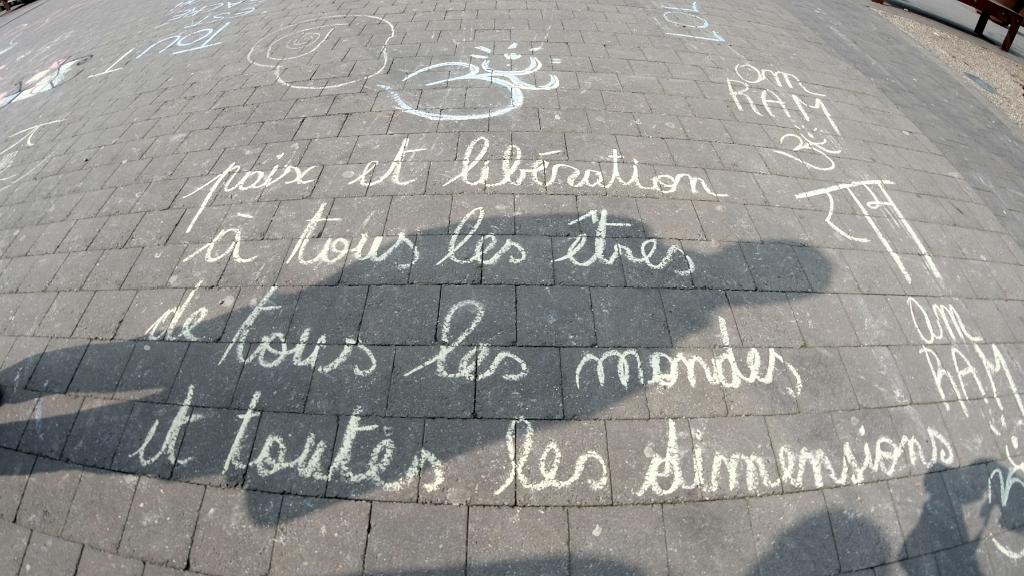 TOUT
TOI
ॐ
om
RAM
ॐ
paix et libération
à tous les êtres
राम
de tous les mondes
om
RAM
et toutes les dimensions
ॐ